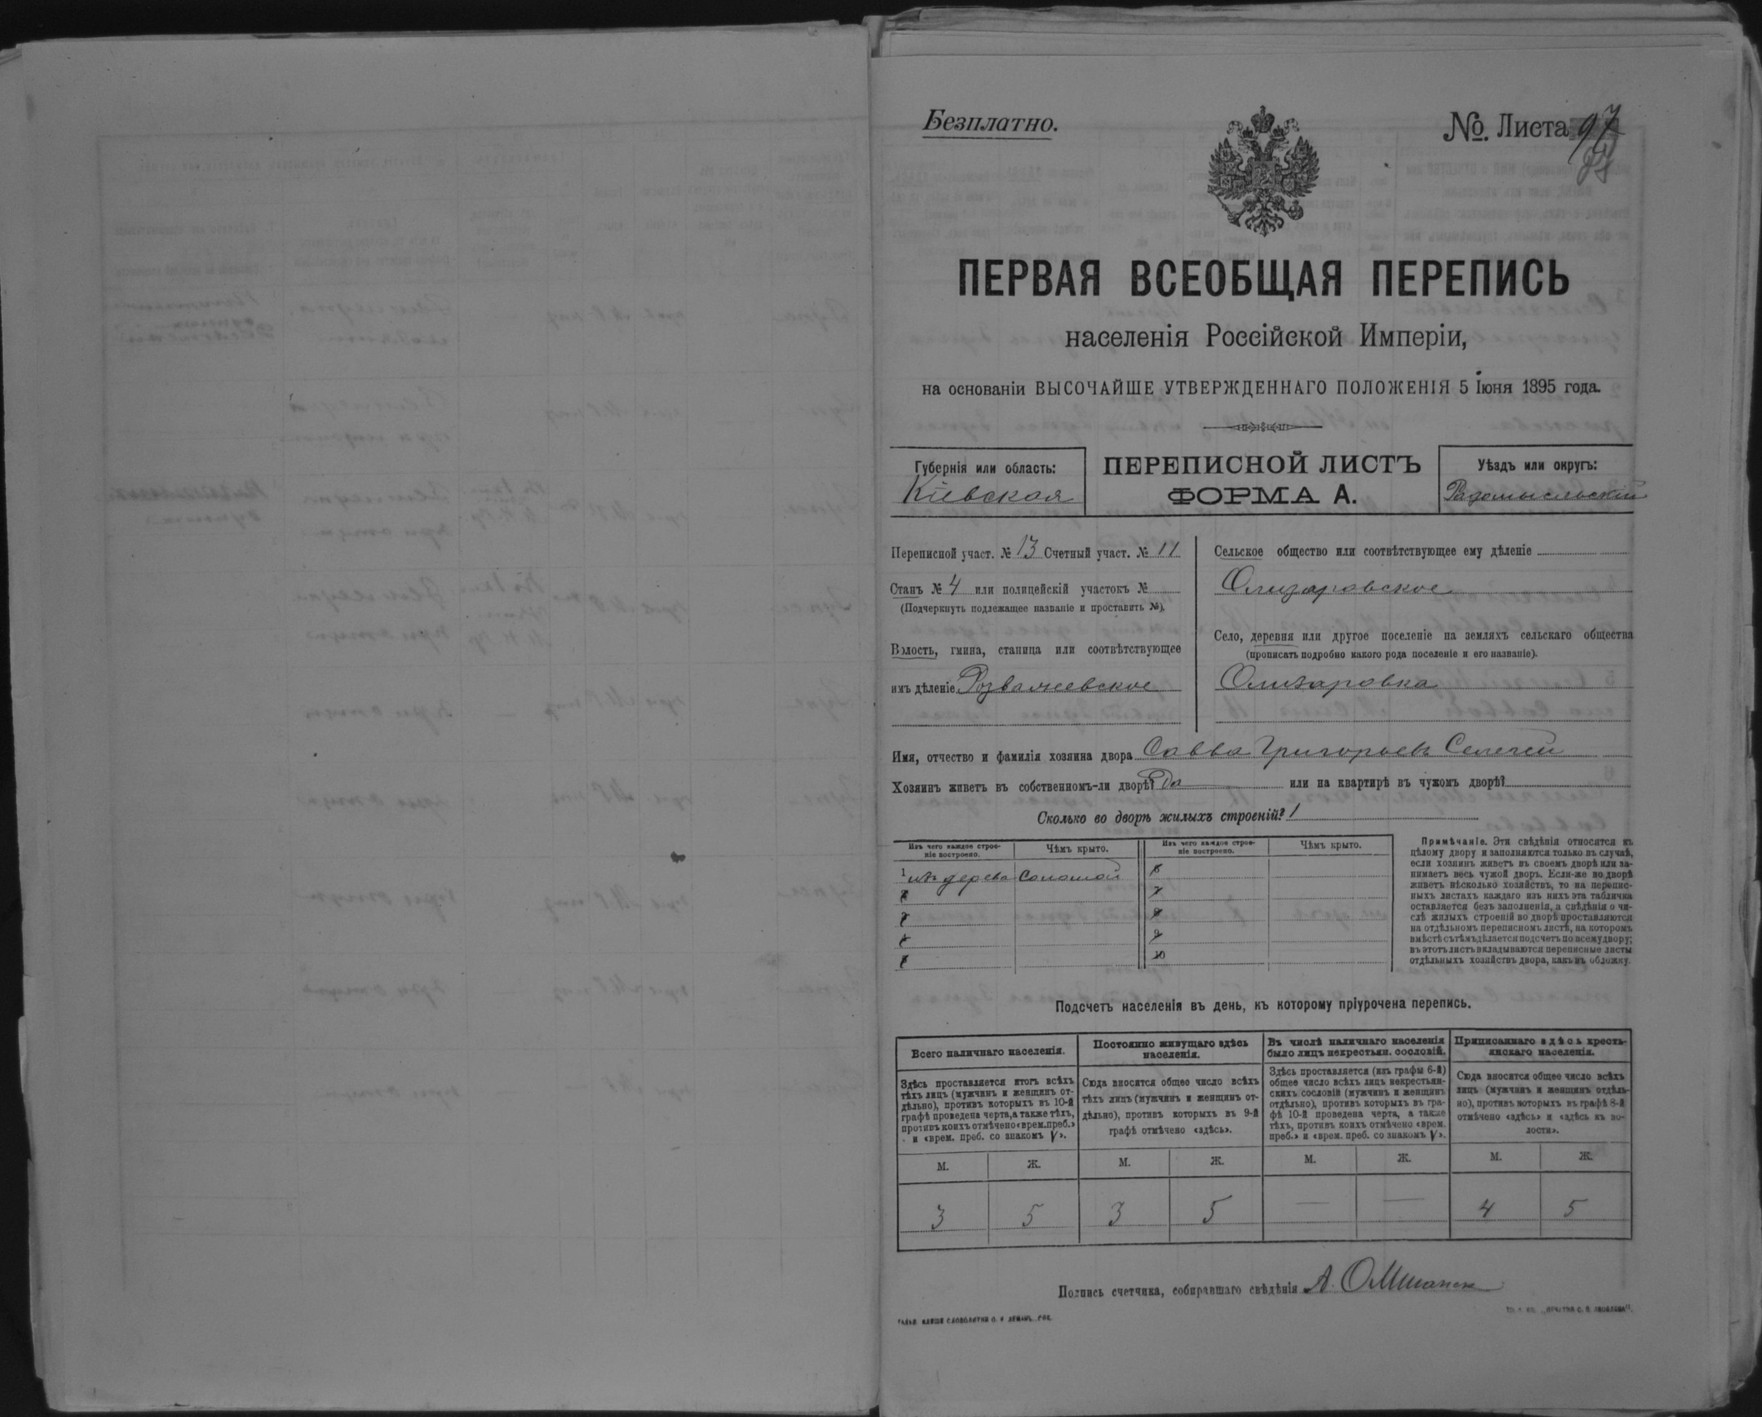 Безплатно.
№. Листа 97
ПЕРВАЯ ВСЕОБЩАЯ ПЕРЕПИСЬ
населенія Россійской Имперіи,
на основаніи ВЫСОЧАЙШЕ УТВЕРЖДЕННАГО ПОЛОЖЕНІЯ 5 Іюня 1895 года.
Губернія или область:
Кіевская
ПЕРЕПИСНОЙ ЛИСТЪ
ФОРМА А.
Уѣздъ или округъ:
Радомысльскій
Переписной участ. № 13 Счетный участ. № 11
Станъ № 4 или полицейскій участокъ №
(Подчеркнуть подлежащее названіе и проставить №).
Волость, гмина, станица или соотвѣтствующее
имъ дѣленіе Розважевское
Сельское общество или соотвѣтствующее ему дѣленіе
Олизаровское
Село, деревня или другое поселеніе на земляхъ сельскаго общества
(прописать подробно какого рода поселеніе и его названіе).
Олизаровка
Имя, отчество и фамилія хозяина двора Савва Григорьевъ Селечей
Хозяинъ живетъ въ собственномъ-ли дворѣ? Да или на квартирѣ въ чужомъ дворѣ?
Сколько во дворѣ жилыхъ строеній? 1
Изъ чего каждое строе-
ніе построено.
Чѣмъ крыто.
Изъ чего каждое строе-
ніе построено.
Чѣмъ крыто.
1 изъ дерева соломой
6
2
7
3
8
4
9
5
10
Примѣчаніе. Эти свѣдѣнія относятся къ
цѣлому двору и заполняются только въ случаѣ,
если хозяинъ живетъ въ своемъ дворѣ или за-
нимаетъ весь чужой дворъ. Если-же во дворѣ
живетъ нѣсколько хозяйствъ, то на перепис-
ныхъ листахъ каждаго изъ нихъ эта табличка
оставляется безъ заполненія, а свѣдѣнія о чи-
слѣ жилыхъ строеній во дворѣ проставляются
на отдѣльномъ переписномъ листѣ, на которомъ
вмѣстѣ съ тѣмъ дѣлается подсчетъ по всему двору;
въ этотъ листъ вкладываются переписные листы
отдѣльныхъ хозяйствъ двора, какъ въ обложку.
Подсчетъ населенія въ день, къ которому пріурочена перепись.
Всего наличнаго населенія.
Постоянно живущаго здѣсь
населенія.
Въ числѣ наличнаго населенія
было лицъ некрестьян. сословій.
Приписаннаго здѣсь кресть-
янскаго населенія.
Здѣсь проставляется итогъ всѣхъ
тѣхъ лицъ (мужчинъ и женщинъ от-
дѣльно), противъ которыхъ въ 10-й
графѣ проведена черта, а также тѣхъ,
противъ коихъ отмѣчено «врем. преб.»
и «врем. преб. со знакомъ V».
Сюда вносится общее число всѣхъ
тѣхъ лицъ (мужчинъ и женщинъ от-
дѣльно), противъ которыхъ въ 9-й
графѣ отмѣчено «здѣсь».
Здѣсь проставляется (изъ графы 6-й)
общее число всѣхъ лицъ некрестьян-
скихъ сословій (мужчинъ и женщинъ
отдѣльно), противъ которыхъ въ гра-
фѣ 10-й проведена черта, а также
тѣхъ, противъ коихъ отмѣчено «врем.
преб.» и «врем. преб. со знакомъ V».
Сюда вносится общее число всѣхъ
лицъ (мужчинъ и женщинъ отдѣль-
но), противъ которыхъ въ графѣ 8-й
отмѣчено «здѣсь» и «здѣсь въ во-
лости».
М. Ж. М. Ж. М. Ж. М. Ж.
3 5 3 5 — — 4 5
Подпись счетчика, собиравшаго свѣдѣнія А.